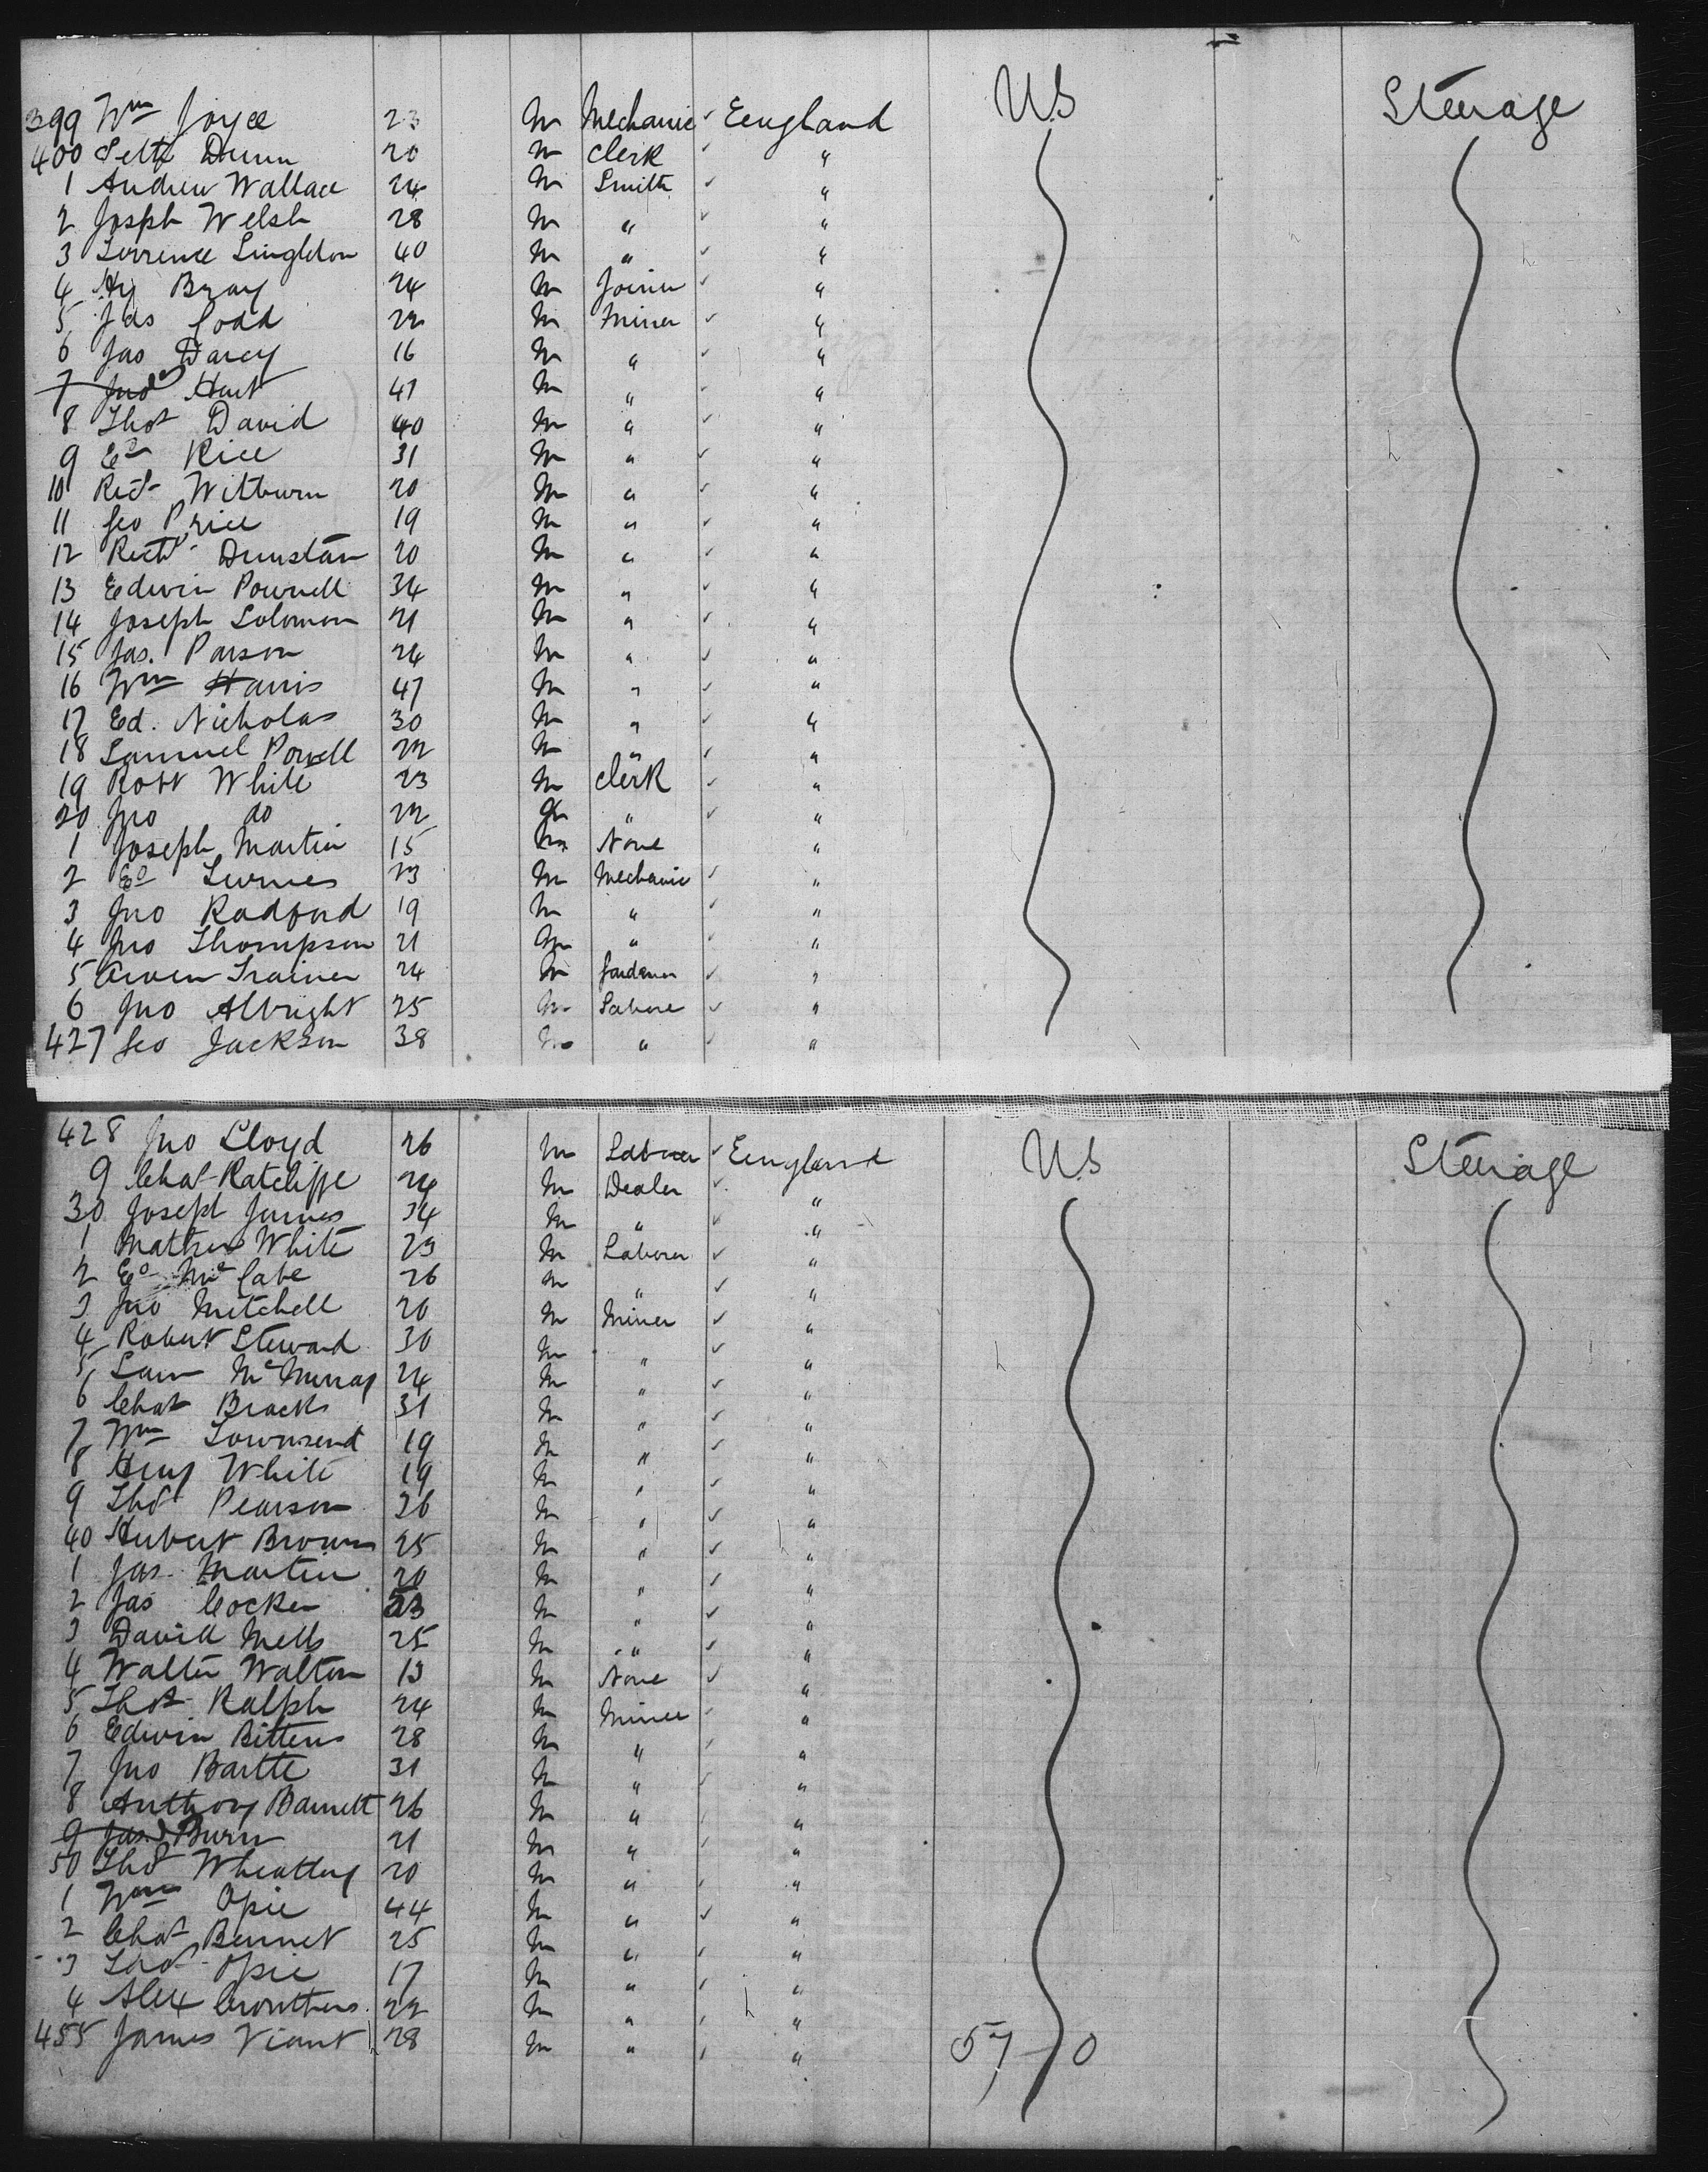 399 Wm Joyce 23 M Mechanic England US Steerage
400 Seth Dunn 20 M Clerk "
1 Andrew Wallace 24 M Smith "
2 Joseph Welsh 28 M " "
3 Terrence Singleton 40 M " "
4 Hy Bray 24 M Joiner "
5 Jas Codd 22 M Miner "
6 Jas Darcy 16 M " "
7 Jno Hart 41 M " "
8 Thos David 40 M " "
9 Ed Rice 31 M " "
10 Richd Witburn 20 M " "
11 Geo Price 19 M " "
12 Richd Dunstan 20 M " "
13 Edwin Pownell 34 M " "
14 Joseph Solomon 21 M " "
15 Jas. Parson 24 M " "
16 Wm Harris 47 M " "
17 Ed. Nicholas 30 M " "
18 Samuel Powell 22 M " "
19 Robt White 23 M Clerk "
20 Jno do 22 M " "
1 Joseph Martin 15 M None "
2 Ed 23 M Mechanic "
3 Jno Radford 19 M " "
4 Jno Thompson 21 M " "
5 Owen Trainer 24 M Gardener "
6 Jno Albright 25 M Laborer "
427 Geo Jackson 38 M " "
428 Jno Lloyd 26 M Laborer England US Steerage
9 Chas Ratcliffe 24 M Dealer "
30 Joseph James 34 M " "
1 Mathew White 23 M Laborer "
2 Ed McCabe 26 M " "
3 Jno Mitchell 20 M Miner "
4 Robert Steward 30 M " "
5 Sam McMurray 24 M " "
6 Chas Bracks 31 M " "
7 Wm Townsend 19 M " "
8 Henry White 19 M " "
9 Thos Pearson 26 M " "
40 Hubert Brown 25 M " "
1 Jas. Martin 20 M " "
2 Jas Cocker 23 M " "
3 David Mells 25 M " "
4 Walter Walton 13 M None "
5 Thos Ralph 24 M Miner "
6 Edwin Bittens 28 M " "
7 Jno Bartte 31 M " "
8 Anthony Barnett 26 M " "
9 Jas. Burn 21 M " "
50 Thos Wheatley 20 M " "
1 Wm Opie 44 M " "
2 Chas Bennet 25 M " "
3 Thos Opie 17 M " "
4 Alex Crouthers 22 M " "
455 James Viant 28 M " " 57 - 0